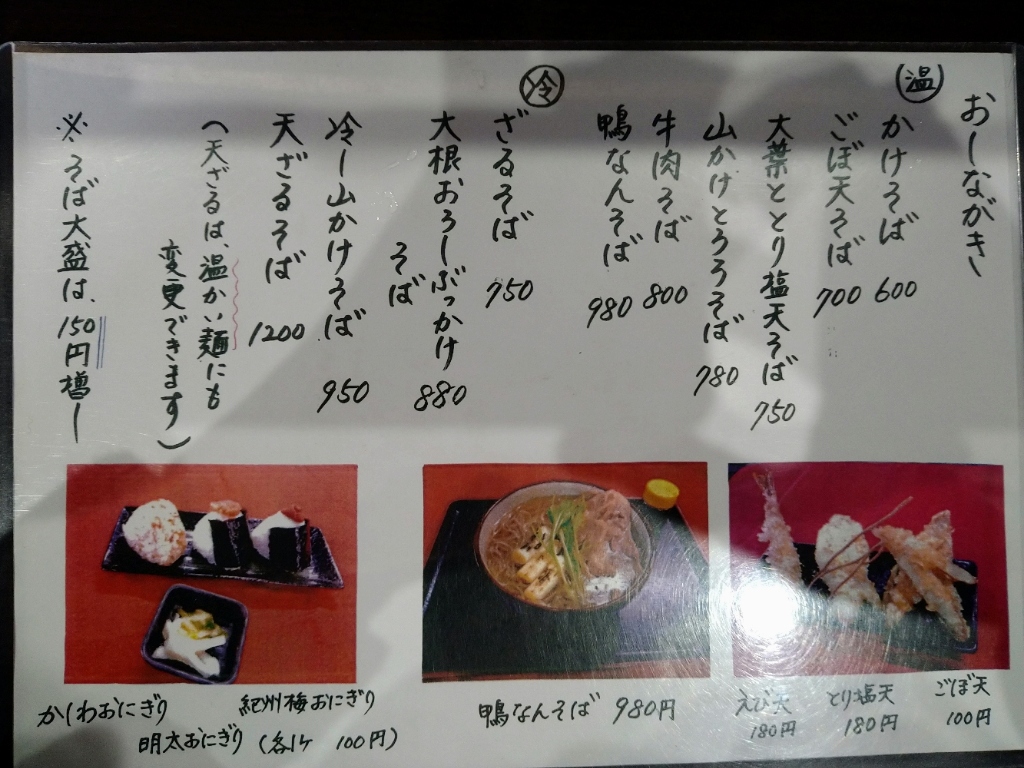 おしながき
温
かけそば 600
ごぼ天そば 700
大葉ととり塩天そば 750
山かけとろろそば 780
牛肉そば 800
鴨なんそば 980
冷
ざるそば 750
大根おろしぶっかけ
そば 880
冷し山かけそば 950
天ざるそば 1200
(天ざるは、温かい麺にも
変更できます)
※そば大盛は、150円増し
かしわおにぎり
紀州梅おにぎり
明太おにぎり (各1ケ 100円)
鴨なんそば 980円
えび天
180円
とり塩天
180円
ごぼ天
100円